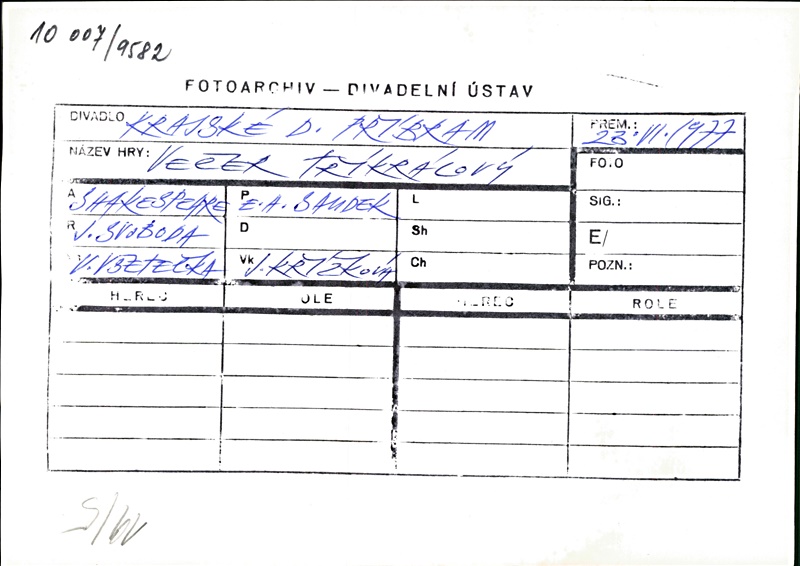 10 007/9582
FOTOARCHIV — DIVADELNÍ ÚSTAV
DIVADLO KRAJSKÉ D. PŘÍBRAM
PREM.: 23. VI. 1977
NÁZEV HRY: VEČER TŘÍKRÁLOVÝ
FOTO
A SHAKESPEARE P E. A. SAUDEK L
SIG.:
R J. SVOBODA D Sh
E/
V. VŠETEČKA Vk J. KŘÍŽKOVÁ Ch
POZN.:
HEREC ROLE HEREC ROLE